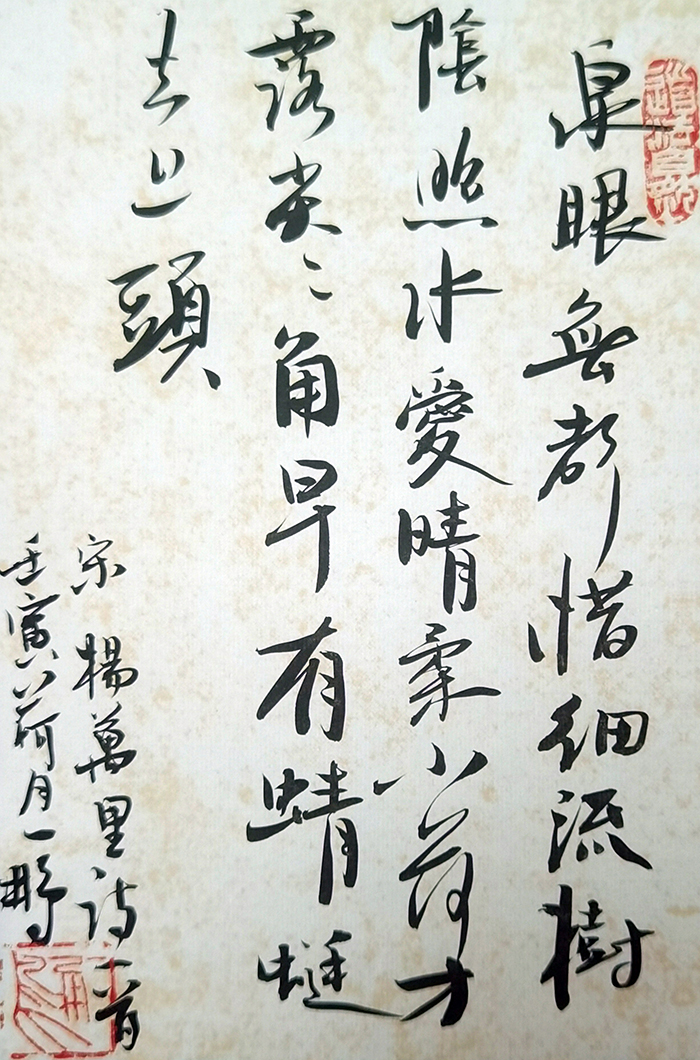 道法自然
泉眼無都惜細流樹
陰照水愛晴柔小荷才
露尖〻角早有蜻蜓
立上頭
宋楊萬里詩一首
壬寅荷月一